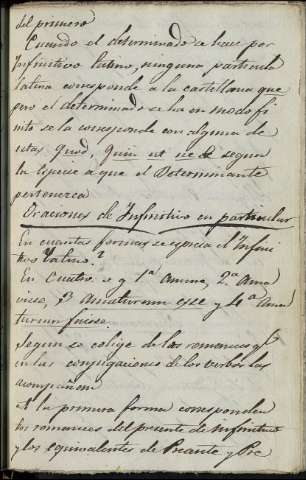 del primero
Cuando el determinado se hace por
Infinitivo latino, ninguna particula
latina corresponde a la castellana que
pero el determinado se ha en modo fi
nito se la corresponde con alguna de
estas Quod, Quin ut ne segun
la especie a que el Determinante
pertenezca
Oraciones de Infinitivo en particular
En cuantas formas se espresa el Infini
tivo Latino?
En Cuatro. v g 1ª Amare, 2ª Ama
visse, 3ª Amaturum esse y 4ª Ama
turum fuisse.
Segun se colige de los romances qe
en las conjugaciones de los verbos las
acompañan
A la primera forma corresponden
los romances del presente de Infinitivo
y los equivalentes de Preante y Pre